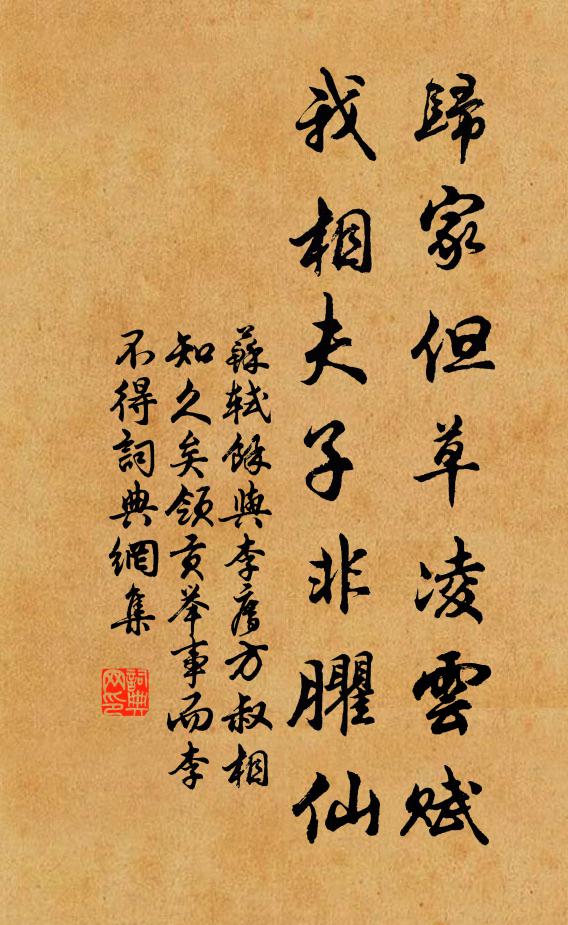 歸家但草凌雲賦
我相夫子非臞仙
蘇軾餘與李廌方叔相
知久矣領貢舉事而李
不得詞典網集
詞典
网印